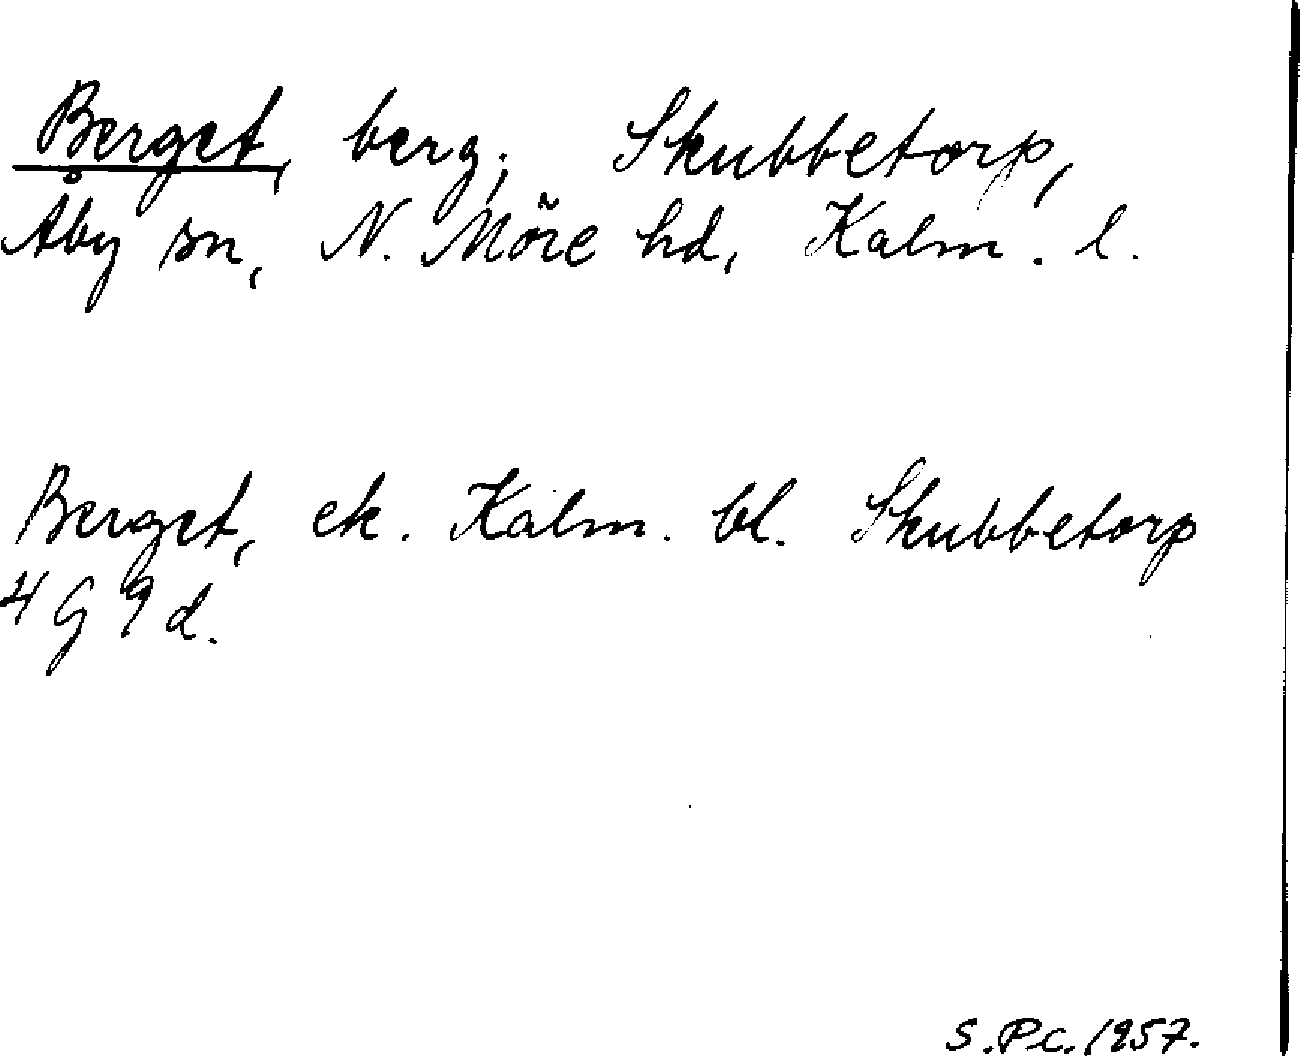 Berget, berg; Skubbetorp,
Åby sn, N. Möre hd, Kalm. l.
Berget, ek. Kalm. bl. Skubbetorp
4 G 9 d.
S.P.c. 1957.